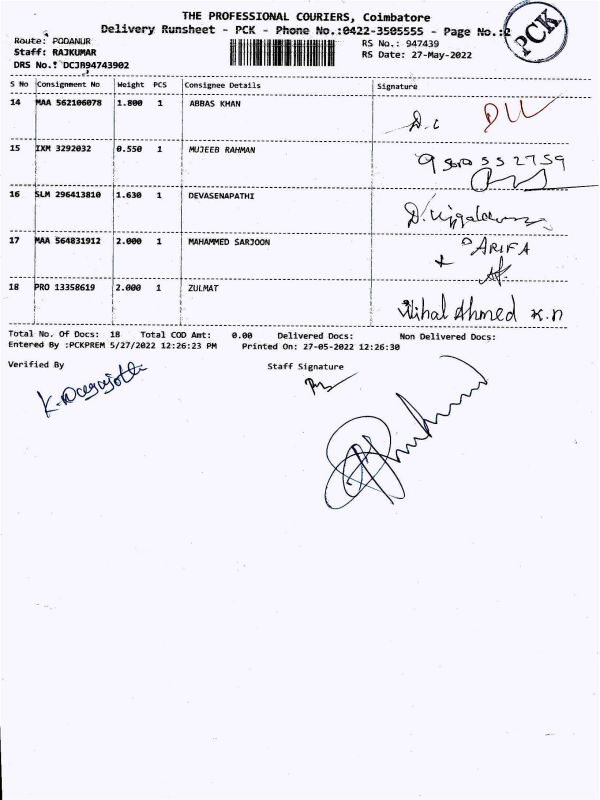 THE PROFESSIONAL COURIERS, Coimbatore
Delivery Runsheet - PCK - Phone No.:0422-3505555 - Page No.:2
PCK
Route: PODANUR
Staff: RAJKUMAR
DRS No.: DCJB94743902
RS No.: 947439
RS Date: 27-May-2022
S No Consignment No Weight PCS Consignee Details Signature
14 MAA 562106078 1.800 1 ABBAS KHAN
15 IXM 3292032 0.550 1 MUJEEB RAHMAN
16 SLM 296413810 1.630 1 DEVASENAPATHI
17 MAA 564831912 2.000 1 MAHAMMED SARJOON ARIFA
18 PRO 13358619 2.000 1 ZULMAT Nihal Ahmed K.n
Total No. Of Docs: 18 Total COD Amt: 0.00 Delivered Docs: Non Delivered Docs:
Entered By :PCKPREM 5/27/2022 12:26:23 PM Printed On: 27-05-2022 12:26:30
Verified By Staff Signature